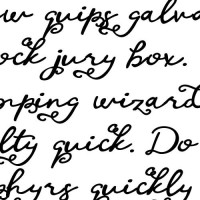 w quips galva
ock jury box.
mping wizard
lty quick. Do
phyrs quickly